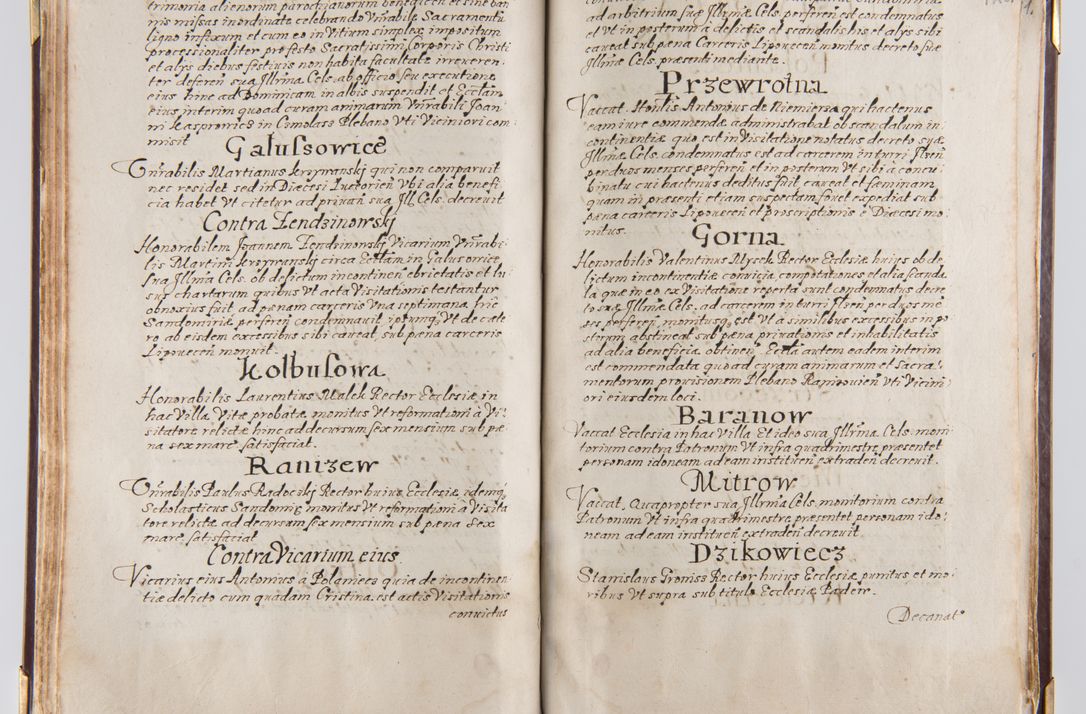 trimonia alienorum parochianorum benedicen et sine ban
nis missas inordinate celebrando Vnrabile Sacramentu
ligno infixum et cum eo in Vitium simplex impositum
processionaliter pro festo Sacratissimi Corporis Christi
et alys diebus festiuis non habita facultate irreueren:
ter deferen sua Jllrma Cels. ab officio seu executione
eius hinc ad Dominicam in albis suspendit et Ecclam
eius interim quoad curam animarum Vnrabili Joan:
ni Kasprowicz in Cmolass Plebano Vti Viciniori com:
misit
Galussowice
Vnrabilis Martianus Krzywanskj qui non comparuit
nec residet sed in Diæcesi Luceorien Vbi alia benefi:
cia habet Vt citetur ad priuan sua Jll. Cels. decreuit
Contra Tendzinowskj
Honorabilem Joannem Tendzinowskj Vicarium Vnrabi:
lis Martini Krzywanskj circa Ecclam in Galusowice
Sua Jllma Cels. ob delictum incontinen ebrietatis et lu:
sus chartarum quibus Vt acta Visitationis testantur
obnoxius fuit ad pænam carceris Vna septimana hic
Sandomiriæ perferen condemnauit ipsumq Vt de cæte:
ro ab eisdem excessibus sibi caueat sub pæna carceris
Lipouecen monuit.
Kolbusowa
Honorabilis Laurentius Malek Rector Ecclesiæ in
hac Villa Vitæ probatæ monitus Vt reformationi à Vi:
sitatore relictæ hinc ad decursum sex mensium sub pæ:
na sex marc. satisfaciat.
Ranizew
Vnrabilis Paulus Radoeskj Rector huius Ecclesiæ idemq
Scholasticus Sandomie monitus Vt reformationi à Visita
tore relictæ ad decursum sex mensium sub pæna sex
marc. satisfaciat
Contra Vicarium eius
Vicarius eius Antonius à Polaniecz quia de incontinen
tiæ delicto cum quadam Cristina est actis Visitationis
conuictus
ad arbitrium suæ Jllrmæ Cels. perferen est condemnatus
et Vt in posterum à delictis et scandalis his et alys sibi
caueat sub pæna Carceris Lipouecen monitus decreto suæ
Jllmæ Cels. præsenti mediante.
Przewrotna
Vaccat. Honlis Antonius de Niemiersa qui hactenus
eam iure commendæ administrabat ob scandalum in:
continentiæ quo est in Visitatione notatus decreto suæ
Jllmæ Cels. condemnatus est ad carcerem in turri Jlsen
per duos menses perferen et in posterum Vt sibi à concu:
binatu cui hactenus deditus fuit caueat et fæminam
quam in præsenti etiam suspectam fouet expediat sub
pæna carceris Lipouecen et proscriptionis è Diæcesi mo:
nitus.
Gorna
Honorabilis Valentinus Mysek Rector Ecclesiæ huius ob de:
lictum incontinentiæ conuicia compotationes et alia scanda:
la quæ in eo ex Visitatione reperta sunt condemnatus decre
to suæ Jllmæ Cels. ad carcerem in turri Jlsen per duos me:
ses perferen monitusq est Vt à similibus excessibus in po:
sterum abstineat sub pæna priuationis et inhabilitatis
ad alia beneficia obtinen. Eccla autem eadem interim
est commendata quoad curam animarum et Sacra:
mentorum prouisionem Plebano Ranizouien Vti Vicini:
ori eiusdem loci.
Baranow
Vaccat Ecclesia in hac Villa Et ideo sua Jllrma Cels. moni
torium contra Patronum Vt infra quadrimestre præsentet
personam idoneam ad eam instituen extraden decreuit.
Mitrow
Vaccat. Quapropter sua Jllrma Cels. monitorium contra
Patronum Vt infra quadrimestre præsentet personam ido:
neam ad eam instituen extraden decreuit
Dzikowiecz
Stanislaus Gromiss Rector huius Ecclesiæ punitus et mo:
ribus Vt supra sub titulo Ecclesiæ Padew.
Decanat